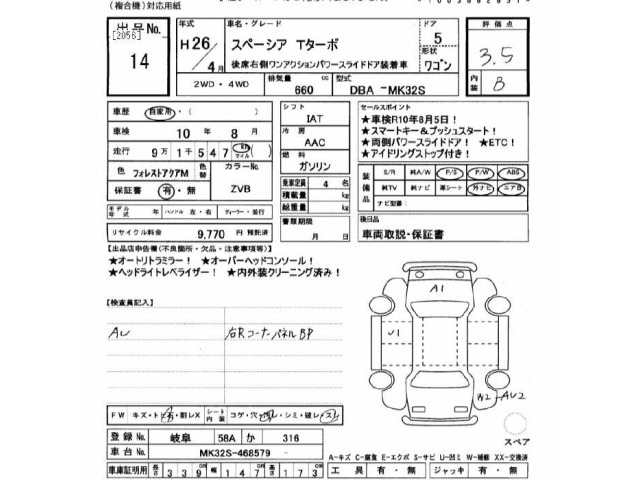 (複合機)対応用紙
出品No.
[2056]
14
年式
H26/4月
車名・グレード
スペーシア Tターボ
後席右側ワンアクションパワースライドドア装着車
ドア
5
形状
ワゴン
評価点
3.5
内装
B
2WD・4WD
排気量
660
cc
型式
DBA－MK32S
車歴
自家用・( )
車検
10 年 8 月
走行
9万1千547
km
マイル
色
フォレストアクアM
色替
カラーNo.
ZVB
保証書
有・無
モデル年式
年
ハンドル
左・右
ディーラー・並行
リサイクル料金
9,770 円
預託済
シフト
IAT
冷房
AAC
燃料
ガソリン
乗車定員 4 名
積載量 kg
総重量 kg
書類期限
月 日
セールスポイント
★車検R10年8月5日！
★スマートキー＆プッシュスタート！
★両側パワースライドドア！ ★ETC！
★アイドリングストップ付き！
装備品
S/R 純A/W P/S P/W ABS
純TV 純ナビ 革シート 外ナビ エアB
ナビ型番：
後日品
車両取説・保証書
【出品店申告欄(不良箇所・欠品・注意事項等)】
★オートリトラミラー！ ★オーバーヘッドコンソール！
★ヘッドライトレベライザー！ ★内外装クリーニング済み！
【検査員記入】
AU
右Rコーナーパネル BP
A1
W2
AU2
スペア
FW
キズ・トビ有・割レX
シート内装
コゲ・穴・切レ・シミ・破レ・スレ
登録No.
岐阜 58A か 316
車台No.
MK32S-468579
A-キズ C-腐食 E-エクボ S-サビ U-凹ミ W-補修 XX-交換済
車庫証明用
長さ 339 cm
幅 147
高さ 173
工具 有・無
ジャッキ 有・無